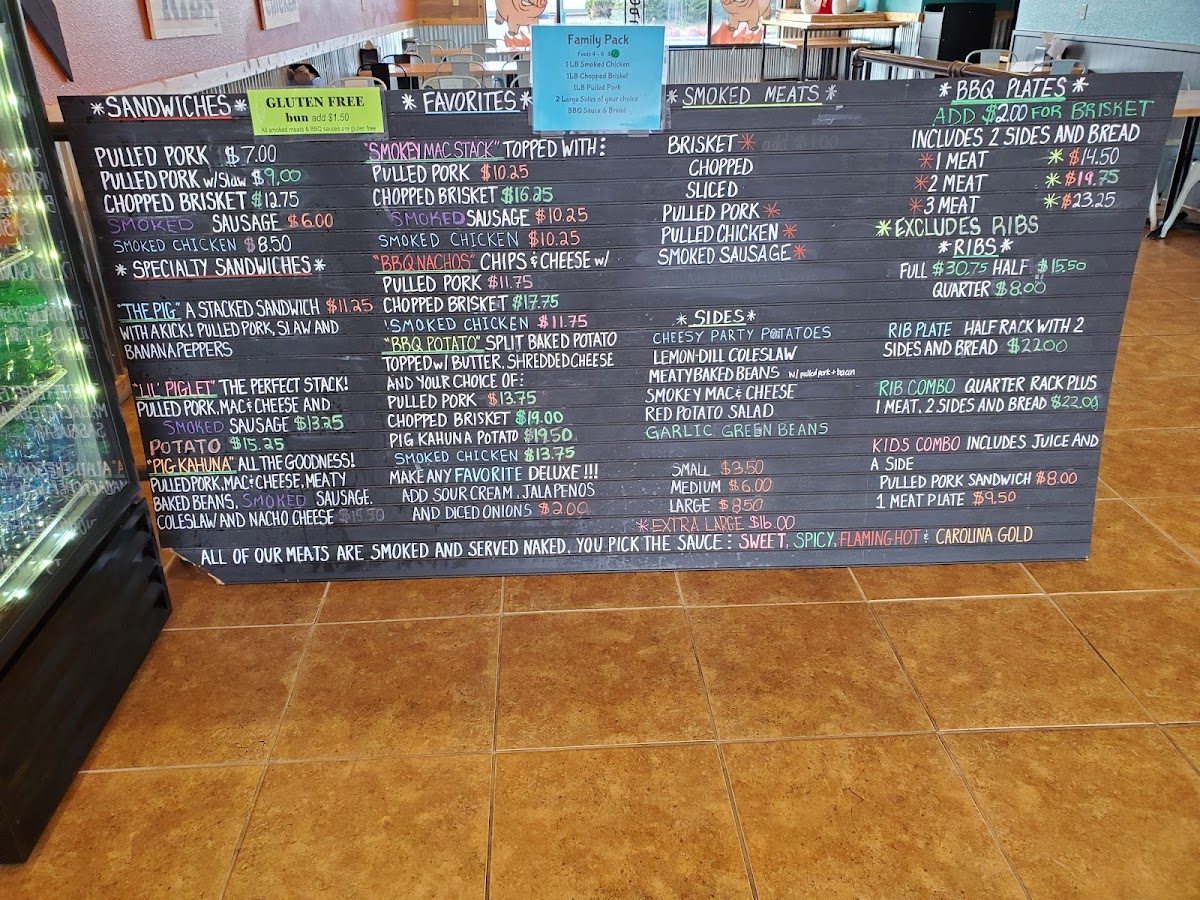 RIBS
Chicken
Family Pack
Feeds 4 - 6
1 LB Smoked Chicken
1LB Chopped Brisket
1LB Pulled Pork
2 Large Sides of your choice
BBQ Sauce & Bread
*SANDWICHES*
GLUTEN FREE
bun add $1.50
All smoked meats & BBQ sauces are gluten free
PULLED PORK $7.00
PULLED PORK w/Slaw $9.00
CHOPPED BRISKET $12.75
SMOKED SAUSAGE $6.00
SMOKED CHICKEN $8.50
*SPECIALTY SANDWICHES*
"THE PIG" A STACKED SANDWICH $11.25
WITH A KICK! PULLED PORK, SLAW AND
BANANA PEPPERS
"LIL' PIGLET" THE PERFECT STACK!
PULLED PORK, MAC & CHEESE AND
SMOKED SAUSAGE $13.25
POTATO $15.25
"PIG KAHUNA" ALL THE GOODNESS!
PULLED PORK, MAC & CHEESE, MEATY
BAKED BEANS, SMOKED SAUSAGE,
COLESLAW AND NACHO CHEESE $15.50
*FAVORITES*
"SMOKEY MAC STACK" TOPPED WITH:
PULLED PORK $10.25
CHOPPED BRISKET $16.25
SMOKED SAUSAGE $10.25
SMOKED CHICKEN $10.25
"BBQ NACHOS" CHIPS & CHEESE w/
PULLED PORK $11.75
CHOPPED BRISKET $17.75
SMOKED CHICKEN $11.75
"BBQ POTATO" SPLIT BAKED POTATO
TOPPED w/ BUTTER, SHREDDED CHEESE
AND YOUR CHOICE OF:
PULLED PORK $13.75
CHOPPED BRISKET $19.00
PIG KAHUNA POTATO $19.50
SMOKED CHICKEN $13.75
MAKE ANY FAVORITE DELUXE!!!
ADD SOUR CREAM, JALAPENOS
AND DICED ONIONS $2.00
*SMOKED MEATS*
BRISKET*
CHOPPED
SLICED
PULLED PORK*
PULLED CHICKEN*
SMOKED SAUSAGE*
*SIDES*
CHEESY PARTY POTATOES
LEMON-DILL COLESLAW
MEATY BAKED BEANS w/ pulled pork + bacon
SMOKEY MAC & CHEESE
RED POTATO SALAD
GARLIC GREEN BEANS
SMALL $3.50
MEDIUM $6.00
LARGE $8.50
*EXTRA LARGE $16.00
*BBQ PLATES*
ADD $2.00 FOR BRISKET
INCLUDES 2 SIDES AND BREAD
*1 MEAT *$14.50
*2 MEAT *$19.75
*3 MEAT *$23.25
*EXCLUDES RIBS
*RIBS*
FULL $30.75 HALF $15.50
QUARTER $8.00
RIB PLATE HALF RACK WITH 2
SIDES AND BREAD $22.00
RIB COMBO QUARTER RACK PLUS
1 MEAT, 2 SIDES AND BREAD $22.00
KIDS COMBO INCLUDES JUICE AND
A SIDE
PULLED PORK SANDWICH $8.00
1 MEAT PLATE $9.50
ALL OF OUR MEATS ARE SMOKED AND SERVED NAKED. YOU PICK THE SAUCE: SWEET, SPICY, FLAMING HOT & CAROLINA GOLD